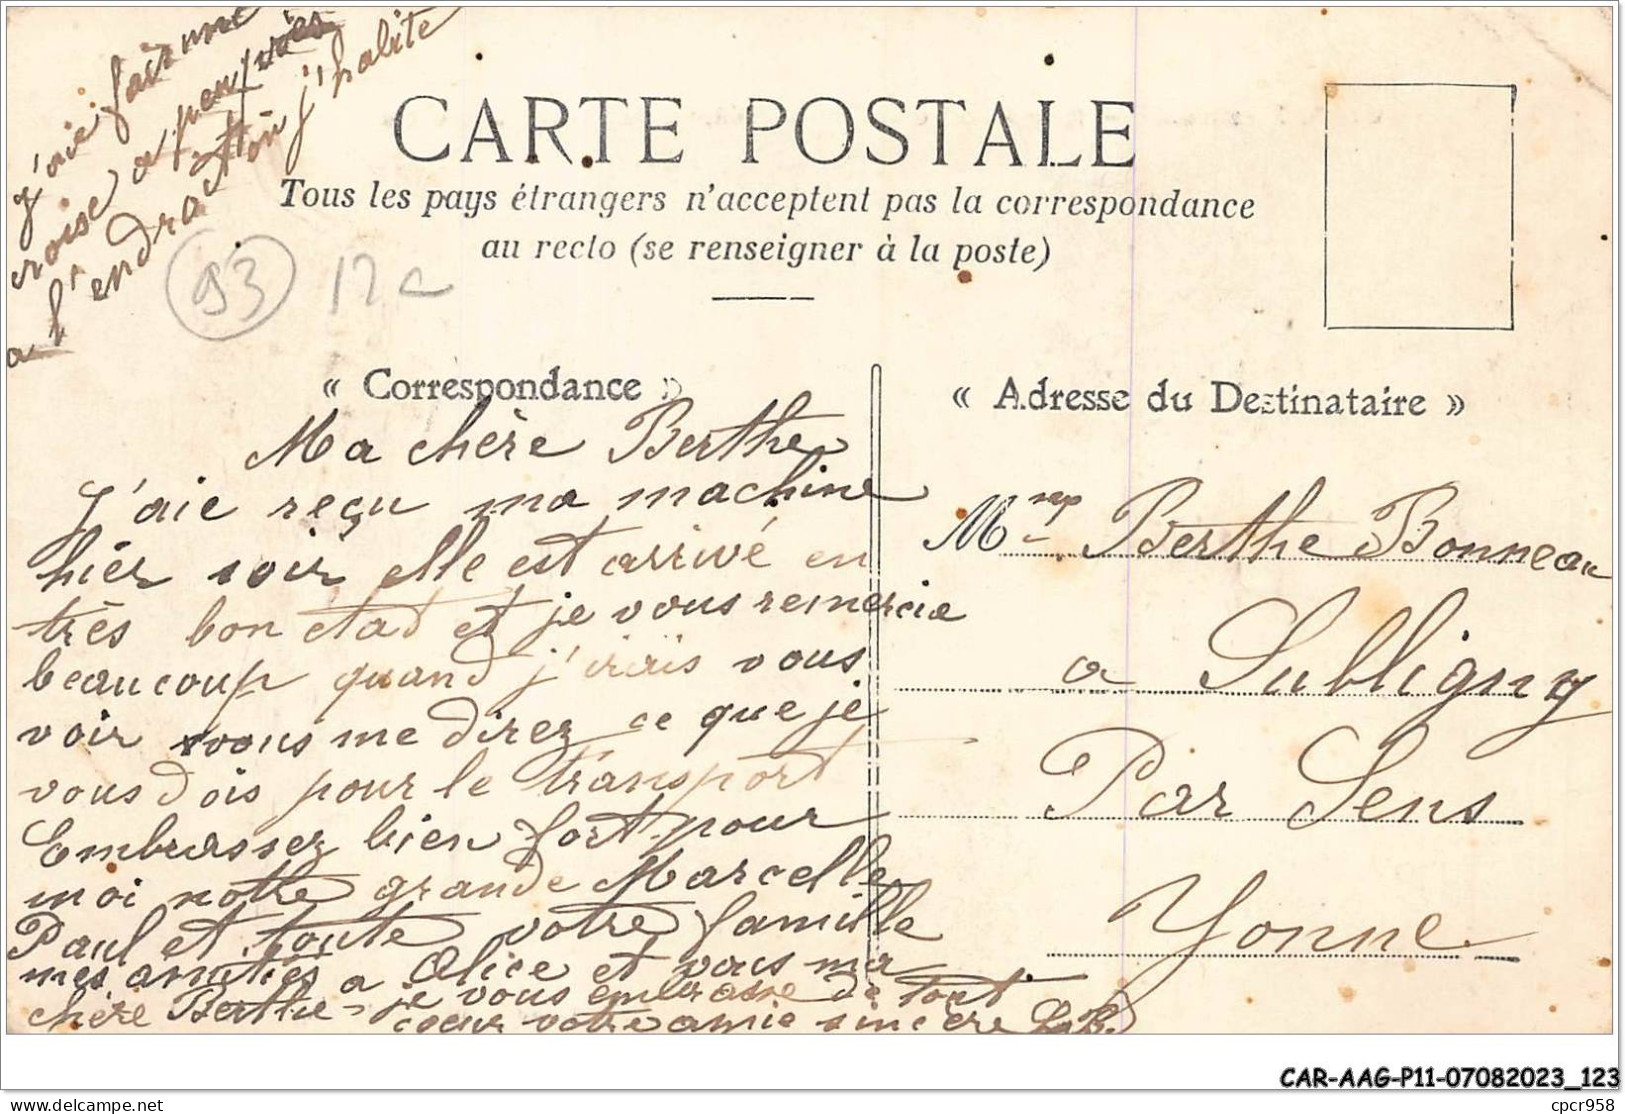 j'aie fait une
croise a peu près
a l'endrac ton j'habite
CARTE POSTALE
Tous les pays étrangers n'acceptent pas la correspondance
au recto (se renseigner à la poste)
93 12c
« Correspondance »
Ma chère Berthe
J'aie reçu ma machine
hièr soir elle est arrivé en
très bon etat et je vous remercie
beaucoup quand j'irais vous
voir vous me direz ce que je
vous dois pour le transport
Embrassez bien fort pour
moi notre grande Marcelle
Paul et toute votre famille
mes amitiés a Alice et vous ma
chère Berthe - je vous embrasse de tout
coeur votre amie sincère
« Adresse du Destinataire »
Berthe Bonneau
a Subligny
Par Sens
Yonne
CAR-AAG-P11-07082023_123
delcampe.net
cpcr958